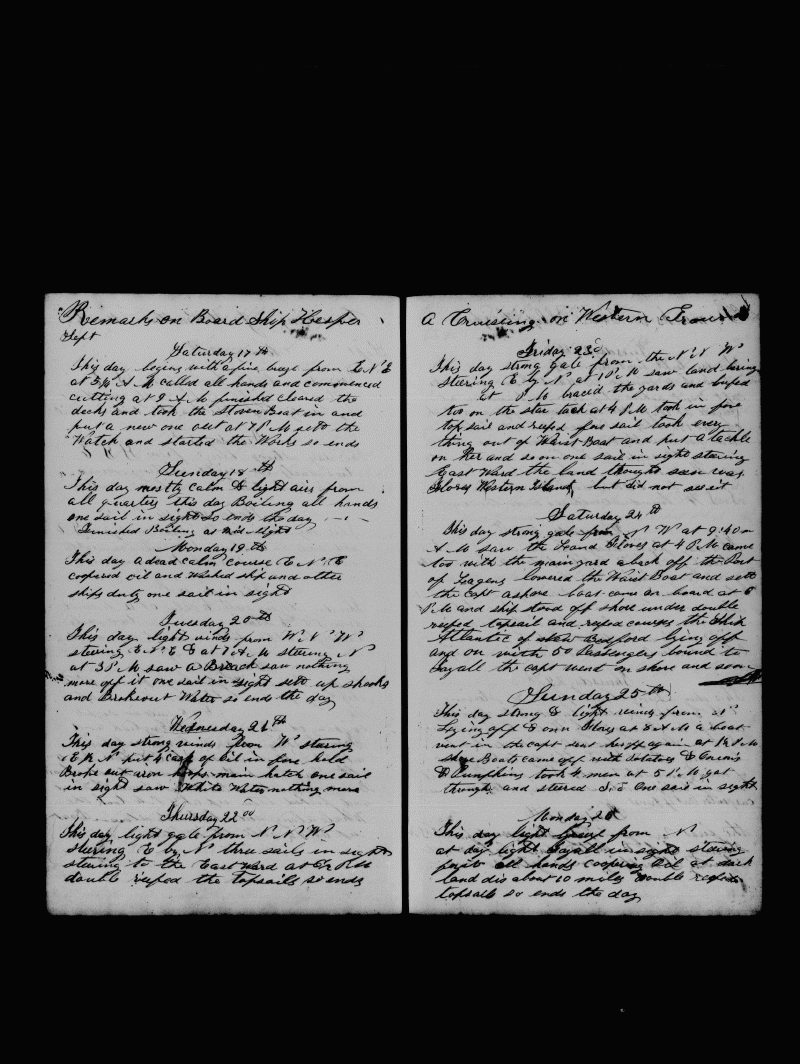 Remarks on Board Ship Hesper
Sept
Saturday 17th
This day begins with a fine breeze from E N E
at 5 A M called all hands and commenced
cutting at 9 A M finished cleared the
decks and took the Stoven Boat in and
put a new one out at 7 P M sett the
Watch and started the Works so ends
Sunday 18th
This day mostly Calm & light airs from
all quarters this day Boiling all hands
one sail in sight so ends the day
finished Boiling at Mid Night
Monday 19th
This day a dead calm course E N E
coopered oil and Washed ship and other
ships duty one sail in sight
Tuesday 20th
This day light winds from W N W
steering E N E & at 7 A M steering N
at 3 P M saw a Breach saw nothing
more off it one sail in sight sett up shooks
and Brokeout Water so ends the day
Wednesday 21th
This day strong winds from W steering
E N put 4 Cask of Oil in fore hold
Broke out iron hoops main hatch one sail
in sight saw White Water nothing more
Thursday 22nd
This day light gale from N N W
steering E by N three sails in sight
stering to the Eastward at P M
double reefed the topsails so ends
A Cruising on Western Ground
Friday 23d
This day strong gale from the N N W
steering E by N at 1 P M saw land bering
at P M braced the yards and luffed
too on the star tack at 4 P M took in fore
top sail and reefed fore sail took every
thing out of Waist Boat and put a tackle
on her and so on one sail in sight steering
East Ward the land thought seen was
Flores Western Island, but did not see it
Saturday 24th
This day strong gale from N W at 9:40 m
A M saw the Land Flores at 4 P M came
too with the mainyard aback off the Port
of Lagens lowered the Waist Boat and sett
the Capt ashore boat came on board at 6
P M and ship stood off shore under double
reefed topsail and reefed courses the Ship
Atlantic of New Bedford lying off
and on with 50 Passengers bound to
Fayall the capt went on shore and soon
Sunday 25th
This day strong & light winds from N
Lying off & onn Flores at 8 A M a boat
went in the capt sent her off again at 12 P M
shore Boats came off with Potatoes & Onions
& Pumpkins took 4 men at 5 P M got
through and steered S E One sail in sight
Monday 26
This day light from N
at day light Fayall in sight steering
for it all hands coopering Oil at dark
land dis about 10 miles double reefed
topsails so ends the day